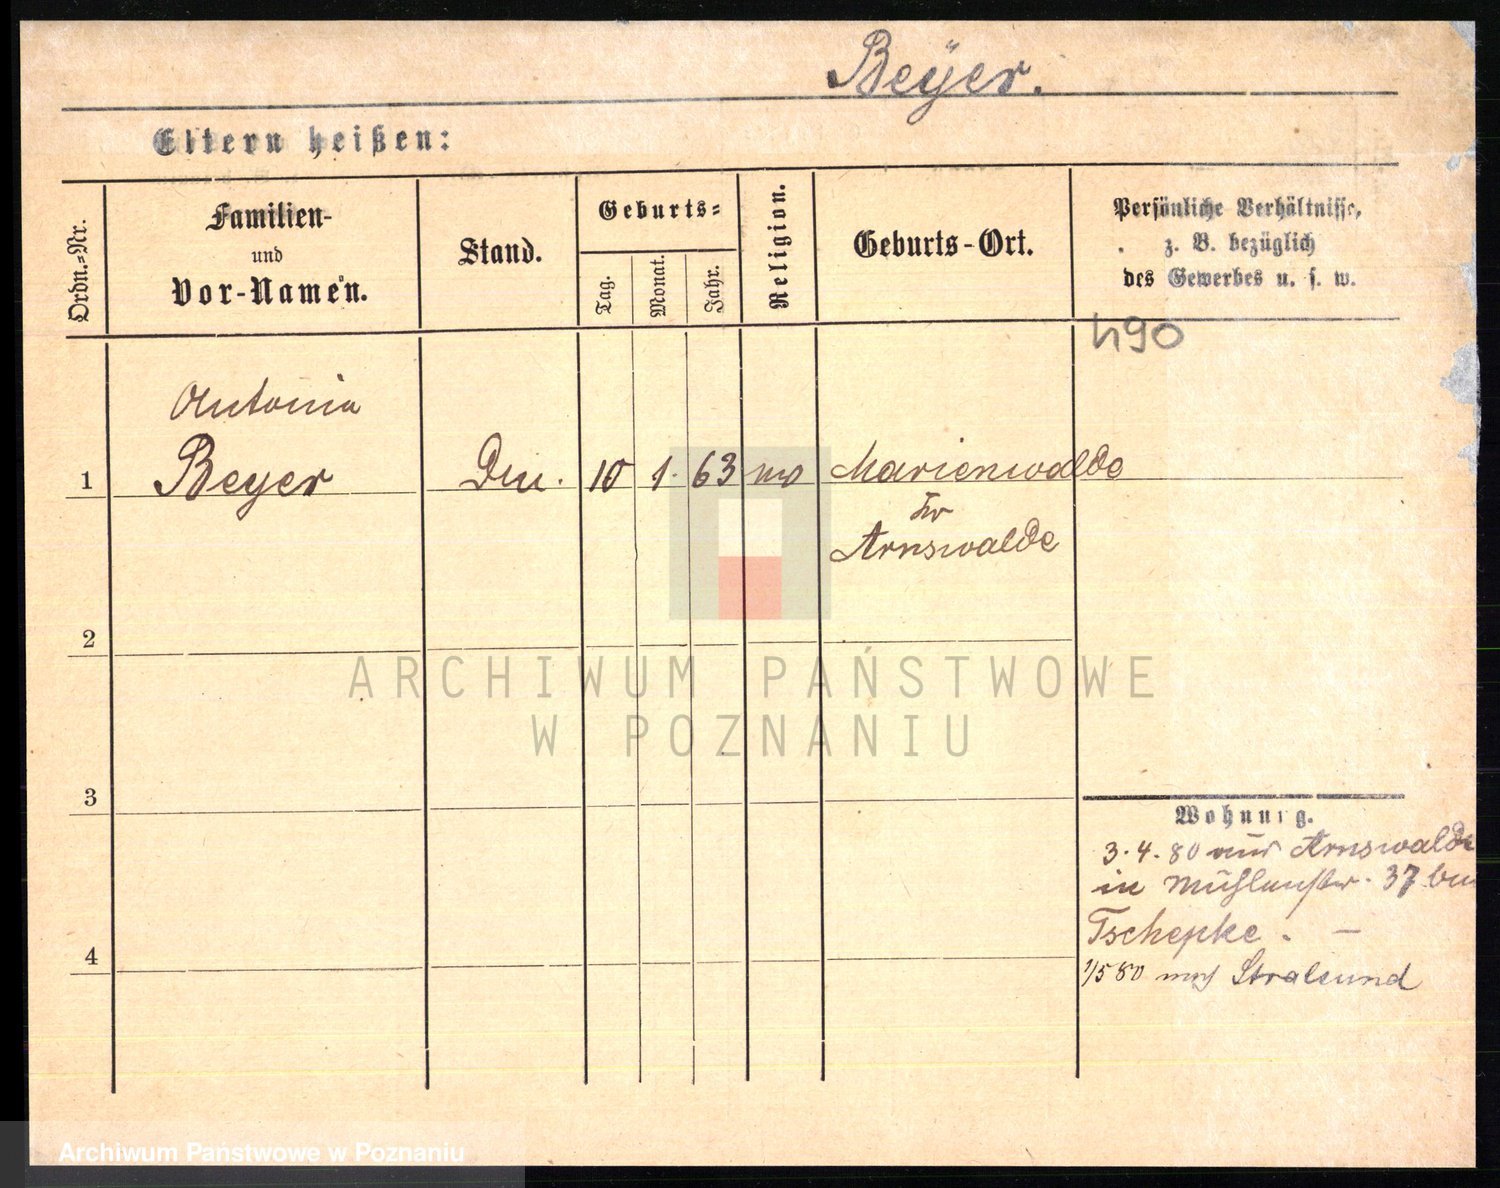 Beÿer.
Eltern heißen:
Ordn.=Nr.
Familien-
und
Vor-Namen.
Stand.
Geburts=
Tag.
Monat.
Jahr.
Religion.
Geburts-Ort.
Persönliche Verhältnisse,
z. B. bezüglich
des Gewerbes u. s. w.
490
Antonia
1 Beyer 10 1. 63 Marienwalde
Kr
Arnswalde
2
3
4
Wohnung.
3. 4. 80 aus Arnswalde
in Mühlenstr. 37 bei
Tschepke. —
1/5 80 nach Stralsund
ARCHIWUM PAŃSTWOWE
W POZNANIU
Archiwum Państwowe w Poznaniu